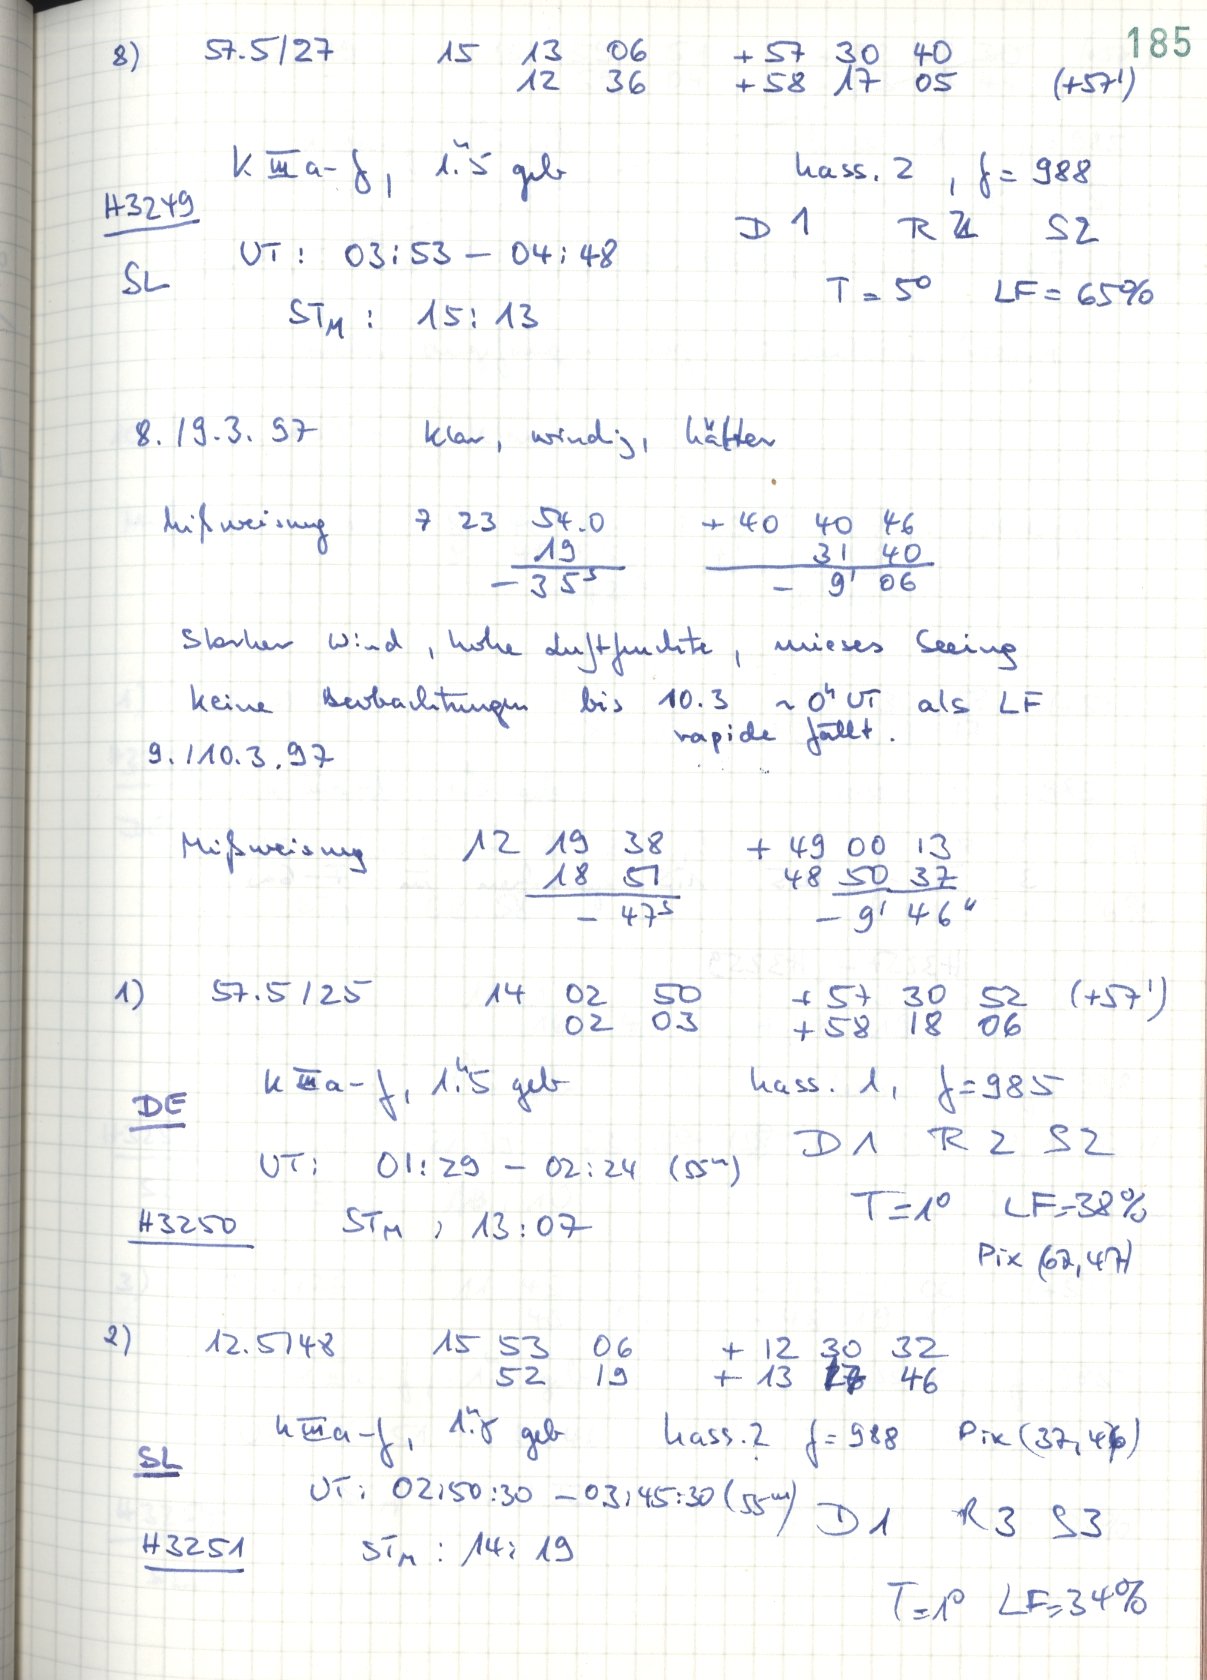 185
8) 57.5/27 15 13 06 +57 30 40
12 36 +58 17 05 (+57')
K IIIa-f, 1.ͪ5 geb Kass. 2, f = 988
H3249 D 1 R S2
UT: 03:53 - 04:48
SL T = 5° LF = 65%
STM: 15:13
8./9.3.97 klar, windig, kälter
Mißweisung 7 23 54.0 +40 40 46
19 31 40
-35ˢ - 9' 06
Starker Wind, hohe Luftfeuchte, mieses Seeing
keine Beobachtungen bis 10.3 ~0ʰ UT als LF
rapide fällt.
9./10.3.97
Mißweisung 12 19 38 +49 00 13
18 51 48 50 37
-47ˢ - 9' 46"
1) 57.5/25 14 02 50 +57 30 52 (+57')
02 03 +58 18 06
K IIIa-f, 1.ͪ5 geb Kass. 1, f = 985
DE D 1 R 2 S2
UT: 01:29 - 02:24 (55ᵐ)
T = 1° LF = 38%
H3250 STM, 13:07
Pix (62,47)
2) 12.5/48 15 53 06 +12 30 32
52 19 +13 17 46
K IIIa-f, 1.ͪ5 geb Kass. 2 f = 988 Pix (37,46)
SL
UT: 02:50:30 - 03:45:30 (55ᵐ) D 1 R 3 S3
H3251 STM: 14:19
T = 1° LF = 34%